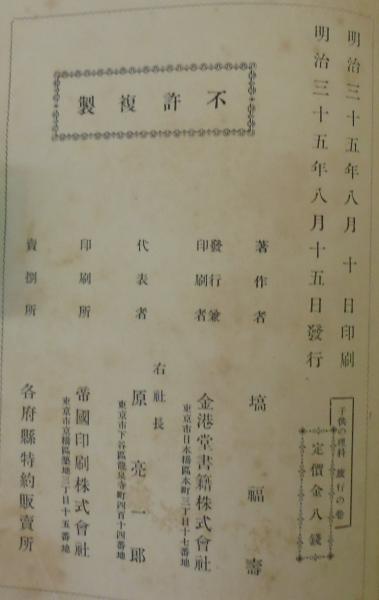 明治三十五年八月十日印刷
明治三十五年八月十五日發行
子供の理科 旅行の巻
定價金八錢
不許複製
著作者 塙福壽
發行兼印刷者 金港堂書籍株式會社
東京市日本橋區本町三丁目十七番地
代表者 右社長 原亮一郎
東京市下谷區龍泉寺町四百十四番地
印刷所 帝國印刷株式會社
東京市京橋區築地三丁目十五番地
賣捌所 各府縣特約販賣所